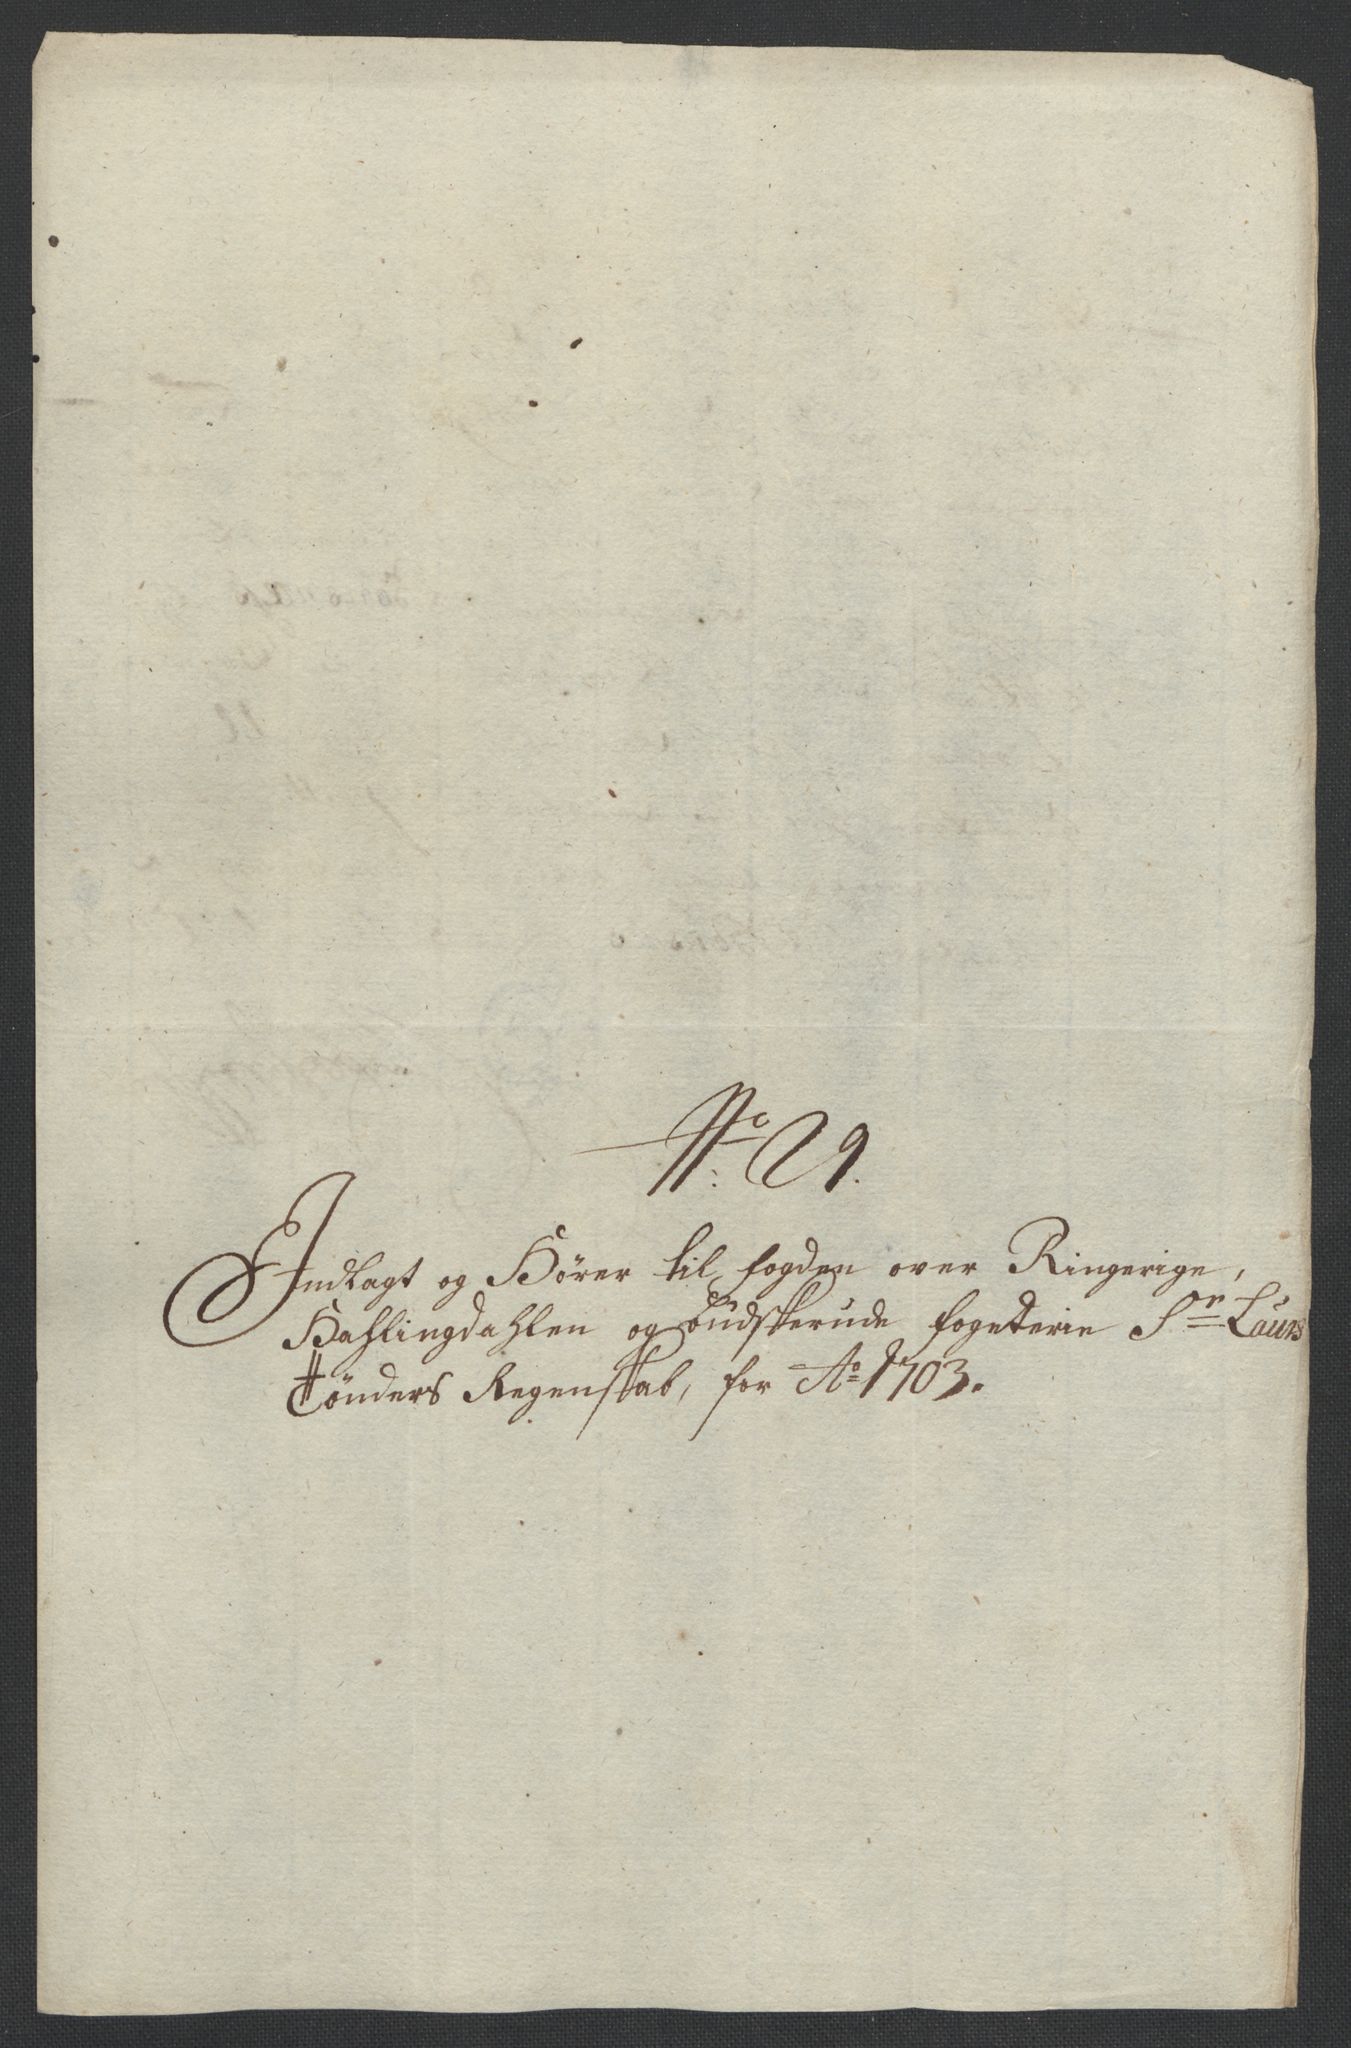 No: 29.
Indlagt og Hörer til fogden over Ringerige,
Hahlingdahlen og Budskerude fogderie Sr Laurs
Tönders Regenskab, for Ao 1703.